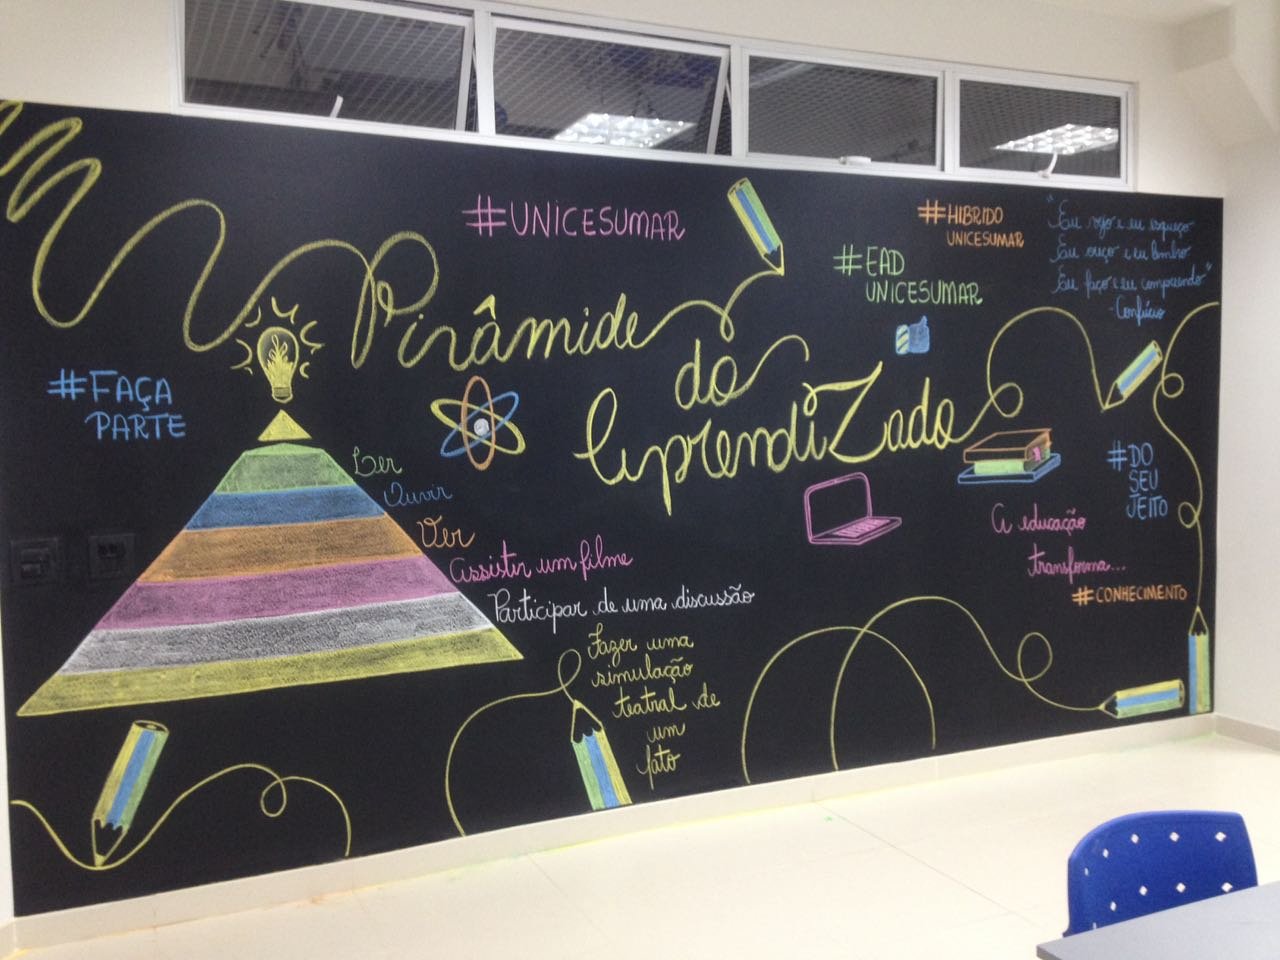 #UNICESUMAR
#HIBRIDO
UNICESUMAR
"Eu vejo e eu esqueço
Eu ouço e eu lembro
Eu faço e eu compreendo"
- Confúcio
#EAD
UNICESUMAR
Pirâmide
do
AprendiZado
#FAÇA
PARTE
Ler
Ouvir
Ver
Assistir um filme
Participar de uma discussão
Fazer uma
simulação
teatral de
um
fato
#DO
SEU
JEITO
A educação
transforma...
#CONHECIMENTO